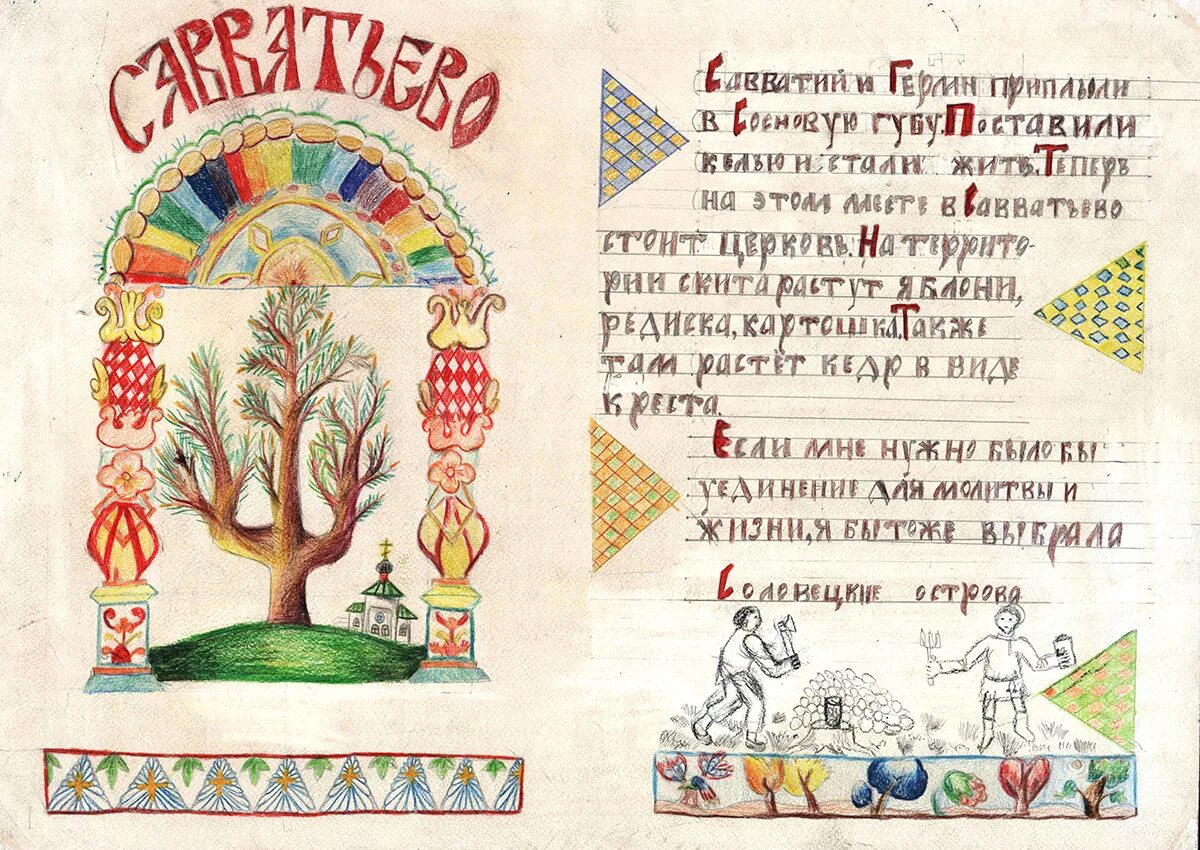 САВВАТЬЕВО
Савватий и Герман приплыли
в Сосновую губу. Поставили
келью и стали жить. Теперь
на этом месте в Савватьево
стоит церковь. На террито-
рии скита растут яблони,
редиска, картошка. Также
там растёт кедр в виде
креста.
Если мне нужно было бы
уединение для молитвы и
жизни, я бы тоже выбрала
Соловецкие острова